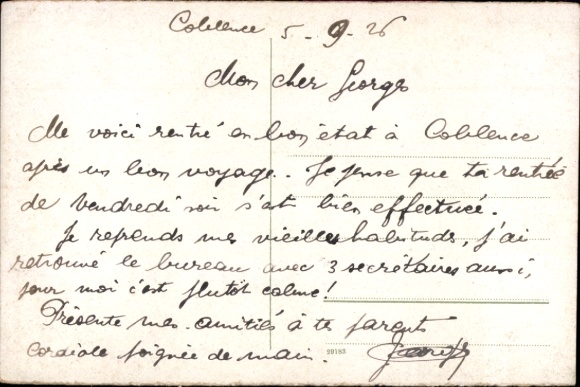 Coblence 5-9-26
Mon cher Georges
Me voici rentré en bon état à Coblence
après un bon voyage. Je pense que ta rentrée
de Vendredi soir s'est bien effectuée.
Je reprends mes vieilles habitudes, j'ai
retrouvé le bureau avec 3 secrétaires aussi,
pour moi c'est plutôt calme!
Présente mes amitiés à tes parents
Cordiale poignée de main.
29183